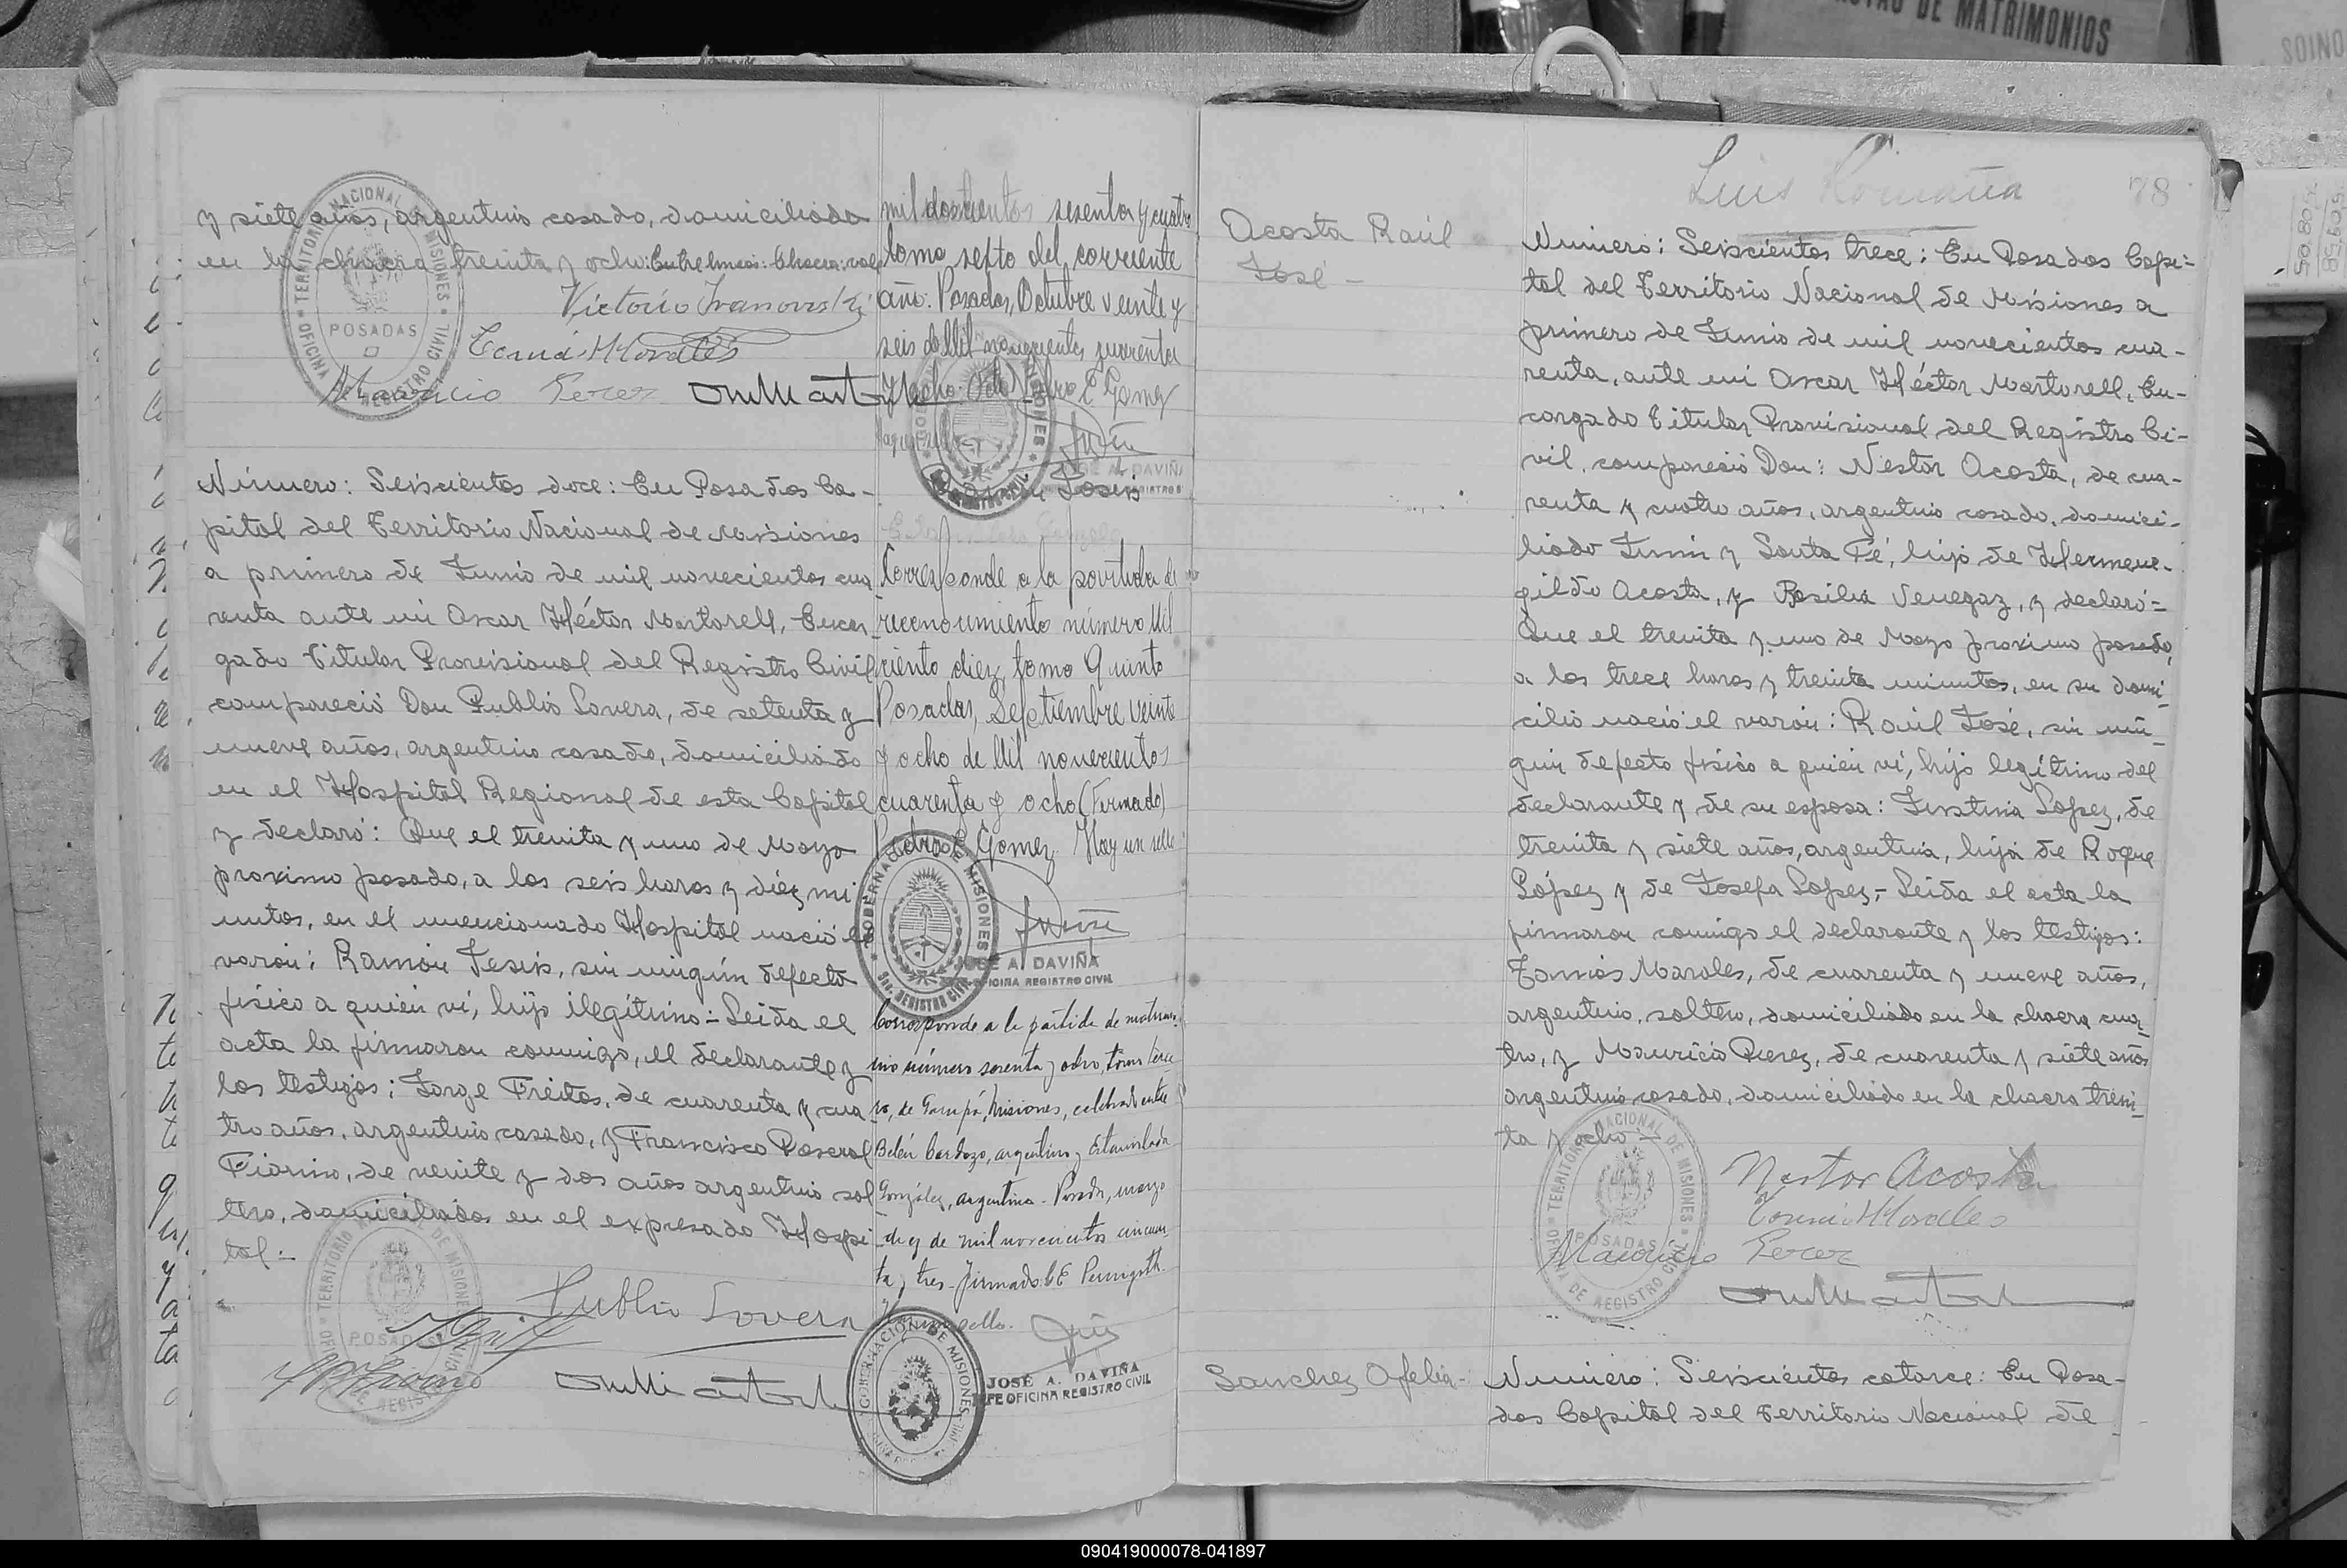 y siete años, argentino casado, domiciliado
en la chacra treinta y ocho: Entre lineas: Chacra: vale
Victorio Ivanovski
Tomás M Morales
Mauricio Perez
OFICINA TERRITORIO NACIONAL DE MISIONES REGISTRO CIVIL
POSADAS
Número: Seiscientos doce: En Posadas Ca-
pital del Territorio Nacional de Misiones
a primero de Junio de mil novecientos cua
renta ante mi Oscar Héctor Martorell, Encar-
gado Titular Provisional del Registro Civil
compareció Don Publio Lovera, de setenta y
nueve años, argentino casado, domiciliado
en el Hospital Regional de esta Capital
y declaró: Que el treinta y uno de Mayo
proximo pasado, a las seis horas y diéz mi
nutos, en el mencionado Hospital nació el
varón: Ramón Jesús, sin ningún defecto
físico a quién ví, hijo ilegítimo.- Leída el
acta la firmaron conmigo, el declarante y
los testigos: Jorge Freitas, de cuarenta y cua
tro años, argentino casado, y Francisco Pascual
Fiorino, de veinte y dos años argentino sol
tero, domiciliados en el expresado Hospi
tal.-
Publio Lovera
POSADAS
mil doscientos sesenta y cuatro
tomo septo del corriente
año. Posadas, Octubre veinte y
seis de Mil novecientos cuarenta
y ocho. Pedro C. Gomez
JOSE A. DAVIÑA
Ramón Jesús
Corresponde a la partida de
reconocimiento número Mil
ciento diez, tomo Quinto
Posadas, Septiembre veinte
y ocho de Mil novecientos
cuarenta y ocho (Firmado)
Pedro C. Gomez. Hay un sello
GOBERNACION DE MISIONES
REGISTRO CIVIL
JOSE A. DAVIÑA
JEFE OFICINA REGISTRO CIVIL
Corresponde a la partida de matrimo-
nio número sesenta y ocho, tomo terce
ro, de Garupá, Misiones, celebrado entre
Belén Cardozo, argentino y Estanislada
González, argentina.- Posadas, marzo
diez de mil novecientos cincuen
ta y tres.- firmado:
Hay un sello.
GOBERNACIÓN DE MISIONES
JOSÉ A. DAVIÑA
JEFE OFICINA REGISTRO CIVIL
Luis Romaña
78
Acosta Raúl
José -
Número: Seiscientos trece: En Posadas Capi-
tal del Territorio Nacional de Misiones a
primero de Junio de mil novecientos cua-
renta, ante mi Oscar Héctor Martorell, En-
cargado Titular Provisional del Registro Ci-
vil, compareció Don: Nestor Acosta, de cua-
renta y cuatro años, argentino casado, domici-
liado Junín y Santa Fé, hijo de Hermene-
gildo Acosta, y Basilia Venegaz, y declaró=
Que el treinta y uno de Mayo proximo pasado,
a las trece horas y treinta minutos, en su domi-
cilio nació el varón: Raúl José, sin nin-
gún defecto físico a quién ví, hijo legítimo del
declarante y de su esposa: Justina López, de
treinta y siete años, argentina, hija de Roque
López y de Josefa Lopez.- Leída el acta la
firmaron conmigo el declarante y los testigos:
Tomás Morales, de cuarenta y nueve años,
argentino, soltero, domiciliado en la chacra cua-
tro, y Mauricio Perez, de cuarenta y siete años
argentino casado, domiciliado en la chacra trein-
ta y ocho.-
Nestor Acosta
Tomás M Morales
Mauricio Perez
OFICINA DE REGISTRO CIVIL TERRITORIO NACIONAL DE MISIONES
POSADAS
Sanchez Ofelia -
Número: Seiscientos catorce: En Posa-
das Capital del Territorio Nacional de
DE MATRIMONIOS
090419000078-041897